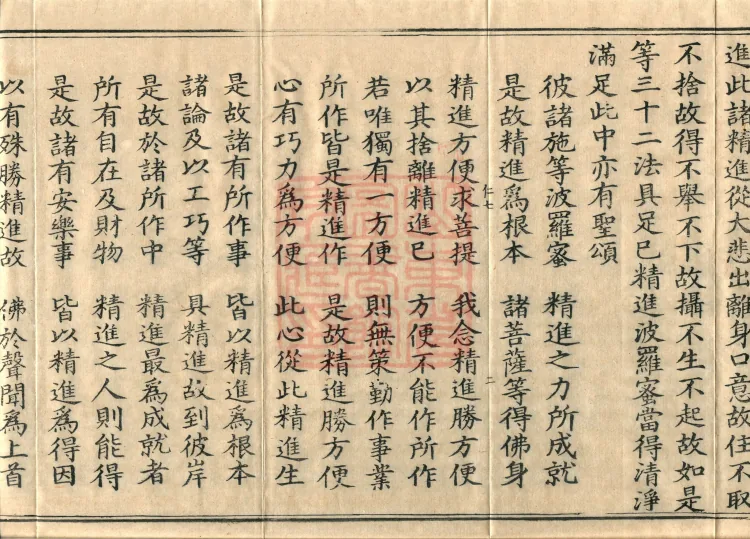 進此諸精進從大悲出離身口意故住不取
不捨故得不舉不下故攝不生不起故如是
等三十二法具足已精進波羅蜜當得清淨
滿足此中亦有聖頌
彼諸施等波羅蜜 精進之力所成就
是故精進爲根本 諸菩薩等得佛身
仁七 二
精進方便求菩提 我念精進勝方便
以其捨離精進已 方便不能作所作
若唯獨有一方便 則無策勤作事業
所作皆是精進作 是故精進勝方便
心有巧力爲方便 此心從此精進生
是故諸有所作事 皆以精進爲根本
諸論及以工巧等 具精進故到彼岸
是故於諸所作中 精進最爲成就者
所有自在及財物 精進之人則能得
是故諸有安樂事 皆以精進爲得因
以有殊勝精進故 佛於聲聞爲上首